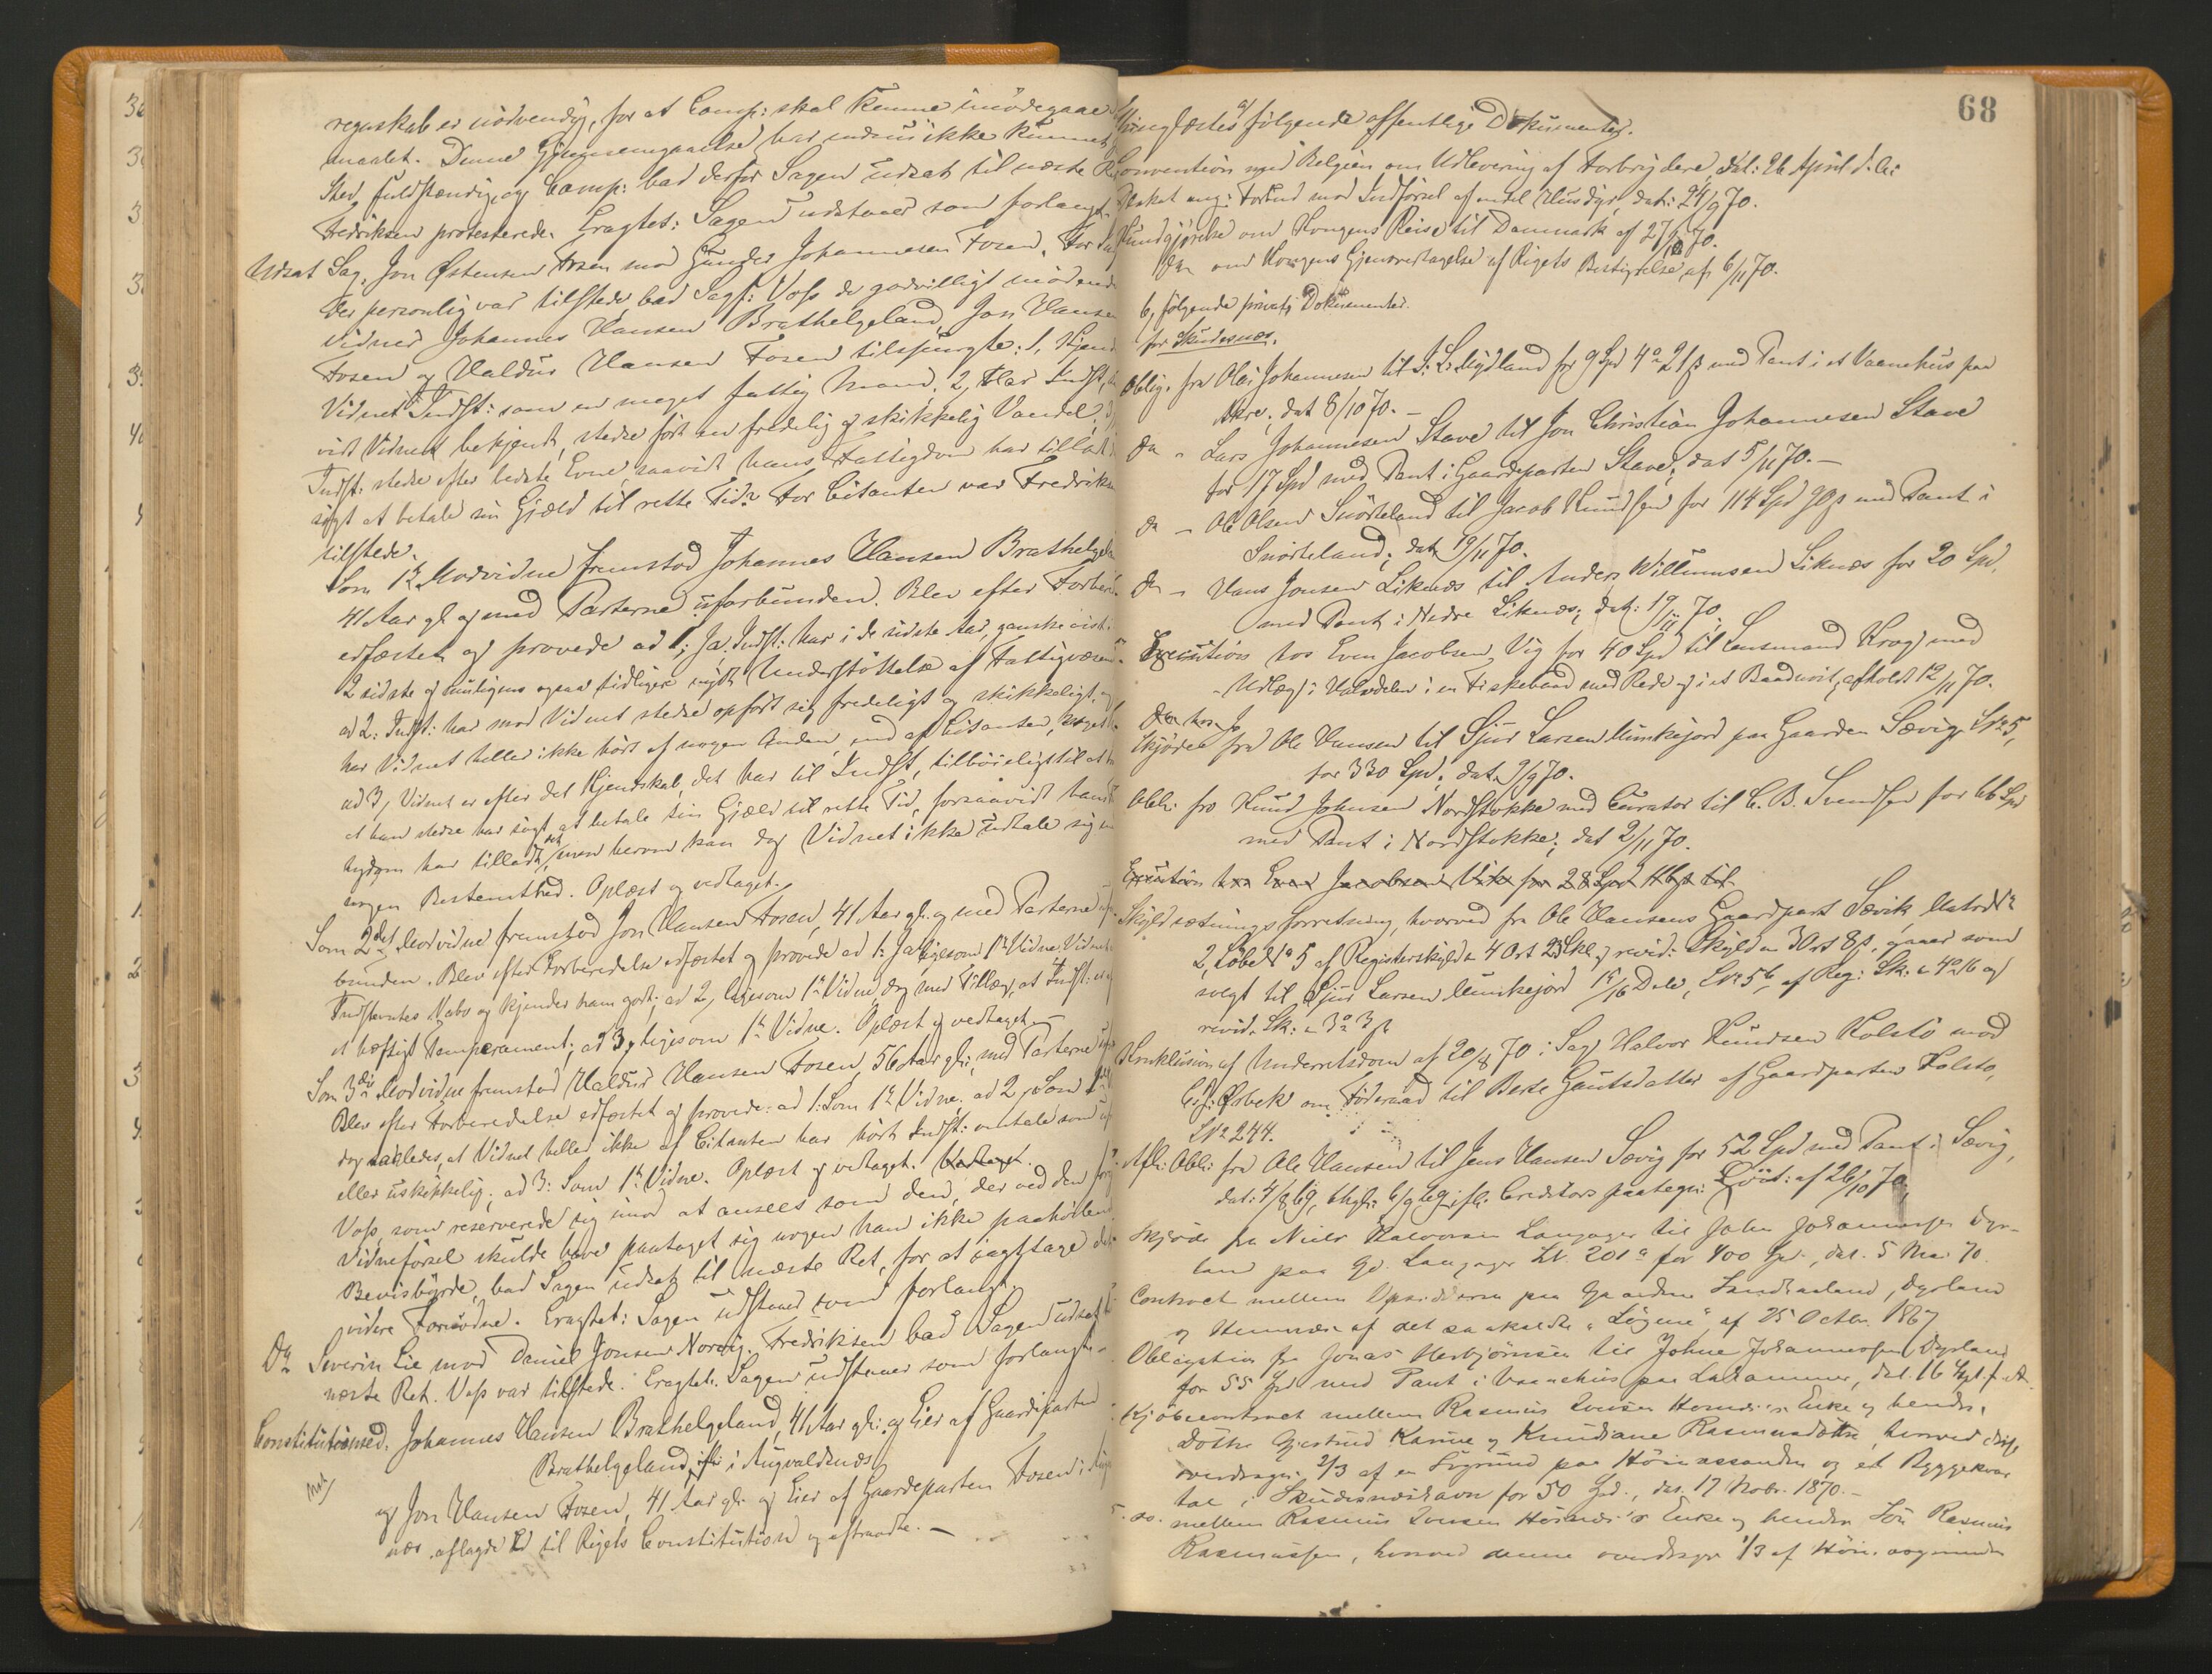 regnskab er nødvendig, for at Comp: skal kunne imødegaae
maalet. Denne Gjennemgaaelse har endnu ikke kunnet
Sted fuldstændig, og Comp: bad derfor Sagen udsat til næste
Fredriksen protesterede. Eragtet: Sagen udstaaer som forlangt.
Udsat Sag. Jon Østensen Fosen mod Gunder Johannesen Fosen. For
der personlig var tilstede bad Sagf: Voss de godvilligt mødende
Vidner Johannes Hansen Brathelgeland, Jon Hansen
Fosen og Valdus Hansen Fosen tilspurgte: 1, Kjender
Vidnet Indst: som en meget fattig Mand. 2, Har Indst,
vidt Vidnet bekjendt, stedse ført en fredelig og skikkelig Vandel.
Indst: stedse efter bedste Evne, saavidt hans Fattigdom har tilladt
søgt at betale sin Gjæld til rette Tid? For Citanten var Fredriksen
tilstede.
Som 1te Modvidne fremstod Johannes Hansen Brathelgeland
41 Aar gl og med Parterne uforbunden. Blev efter Forbere
edfæstet og provede ad 1; Ja. Indst: har i de sidste Aar, ganske vist
2 sidste og rimligens ogsaa tidligere nydt Understøttelse af Fattigvæsenet
ad 2: Indst: har mod Vidnet stedse opført sig fredeligt og skikkeligt, og
har Vidnet heller ikke hørt af nogen Anden, end af Citanten, noget
ad 3, Vidnet er efter det Kjendskab, det har til Indst, tilbøieligt til at
at han stedse har søgt at betale sin Gjæld til rette Tid, forsaavidt hans
tigdom har tilladt det, men herom kan dog Vidnet ikke udtale sig
nogen Bestemthed. Oplæst og vedtaget.
Som 2det Modvidne fremstod Jon Hansen Fosen, 41 Aar gl. og med Parterne
bunden. Blev efter Forberedelse edfæstet og provede ad 1: Ja ligesom 1te Vidne. Vidnet
Indstevntes Nabo og kjender ham godt; ad 2, ligesom 1te Vidne, dog med Tillæg, at Indst:
et hæftigt Temperament; ad 3, ligesom 1te Vidne. Oplæst og vedtaget.—
Som 3die Modvidne fremstod Valdus Hansen Fosen, 56 Aar gl:, med Parterne
Blev efter Forberedelse edfæstet og provede: ad 1: Som 1te Vidne. ad 2, Som
dog saaledes, at Vidnet heller ikke af Citanten har hørt Indst: omtale som
eller uskikkelig; ad 3: Som 1te Vidne. Oplæst og vedtaget. Vedtaget.
Voss, som reserverede sig imod at ansees som den, der ved den
Vidneførsel skulde have paataget sig nogen ham ikke paahvilende
Bevisbyrde, bad Sagen udsat til næste Ret, for at iagttage det
videre Fornødne. Eragtet: Sagen udstaaer som forlangt.
Do Severin Lie mod Daniel Jonsen Norvig. Fredriksen bad Sagen udsat
næste Ret. Voss var tilstede. Eragtet. Sagen udstaaer som forlangt.
Constitutionsed. Johannes Hansen Brathelgeland, 41 Aar gl: og Eier af Gaardeparten
Brathelgeland, i Augvaldsnæs
og Jon Hansen Fosen, 41 Aar gl. og Eier af Gaardeparten Fosen i
næs aflagde Ed til Rigets Constitution og aftraadte.—
68
Thinglæstes a/ følgende offentlige Dokumenter.
Convention med Belgien om Udlevering af Forbrydere, dat: 26 April d. A:
Plakat ang: Forbud mod Indførsel af endel Husdyr, dat: 24/9 70.
Kundgjørelse om Kongens Reise til Danmark af 27/10 70.
do om Kongens Gjenovertagelse af Rigets Bestyrelse af 6/11 70.
b, følgende private Dokumenter.
for Skudesnæs.
Oblig. fra Olai Johannesen til S: L. Mydland for 9 Spd 4o 21 s med Pant i et Vaanehus paa
, dat 8/10 70.—
do " Lars Johannesen Stave til Jon Christian Johannesen Stave
for 17 Spd med Pant i Gaardeparten Stave, dat 5/11 70.—
do — Ole Olsen Snørteland til Jacob Knudsen for 114 Spd 90 s med Pant i
Snørteland; dat 19/11 70.
do — Hans Jonsen Liknæs til Anders Willumsen Liknæs for 20 Spd.
med Pant i Nedre Liknæs; dat: 19/11 70.
Execution hos Even Jacobsen Vig for 40 Spd til Lensmand Krog med
Udlæg i Halvdelen i en Fiskebaad med Rede og i et Baadnøst, afholdt 12/11 70.
do hos
Skjøde fra Ole Hansen til Sjur Larsen Munkejord paa Gaarden Sævig, No 5,
for 330 Spd; dat 9/9 70.
Obli: fra Knud Johnsen Nordstokke med Curator til C. B. Svendsen for 66 Spd
med Pant i Nordstokke; dat 2/11 70.
Execution hos Even Jacobsen Vik for 28 Spd 16 s til
Skyldsætningsforretning, hvorved fra Ole Hansens Gaardpart Sævik, Matr No
2, Løbe No 5 af Registerskyld 4 Ort 23 Skl, revid: Skyld 3 Ort 8 s, gaaer som
solgt til Sjur Larsen Munkejord 15/16 Dele, No 5b, af Reg: Sk: 4o 16 og
revid. Sk: 3o 3 s
Konklusion af Underretsdom af 20/8 70 i Sag Halvor Knudsen Kolstø mod
C. J. Ørbek om Føderaad til Berte Gautsdatter af Gaardparten Kolstø,
No 244.
Afl: Obli: fra Ole Hansen til Jens Hansen Sævig for 52 Spd med Pant i Sævig,
dat: 4/8 69, thgl: 6/9 69; fl. Creditors paategn: Qvit: af 26/10 70.
Skjøde fra Niels Halvorsen Langager til John Johannessen Dyr-
land paa Gd. Langager L. 201a for 400 Spd., dat. 5 Mai 70.
Contract mellem Opsidderne paa Gaardene Sandhaland, Dyrland
og Hemnæs af det saakaldte "Løgene", af 25 Octbr. 1867
Obligation fra Jonas Herbjørnsen til Johne Johannessen Dyrland
for 55 Spd med Pant i Vaanehus paa Ladammen, dat. 16 Sept. f. A.
Kjøbecontract mellem Rasmus Iversen Hornæs's Enke og hendes
Døttre Gjertrud Karine og Knudiane Rasmusdøttre, hvorved disse
overdrages 2/3 af en Søgrund paa Hørnæssanden og et Byggekvar
tal i Skudesnæshavn for 50 Spd., dat. 17 Novbr. 1870.—
do. mellem Rasmus Iversen Hornæs's Enke og hendes Søn Rasmus
Rasmussen, hvorved denne overdrages 1/3 af